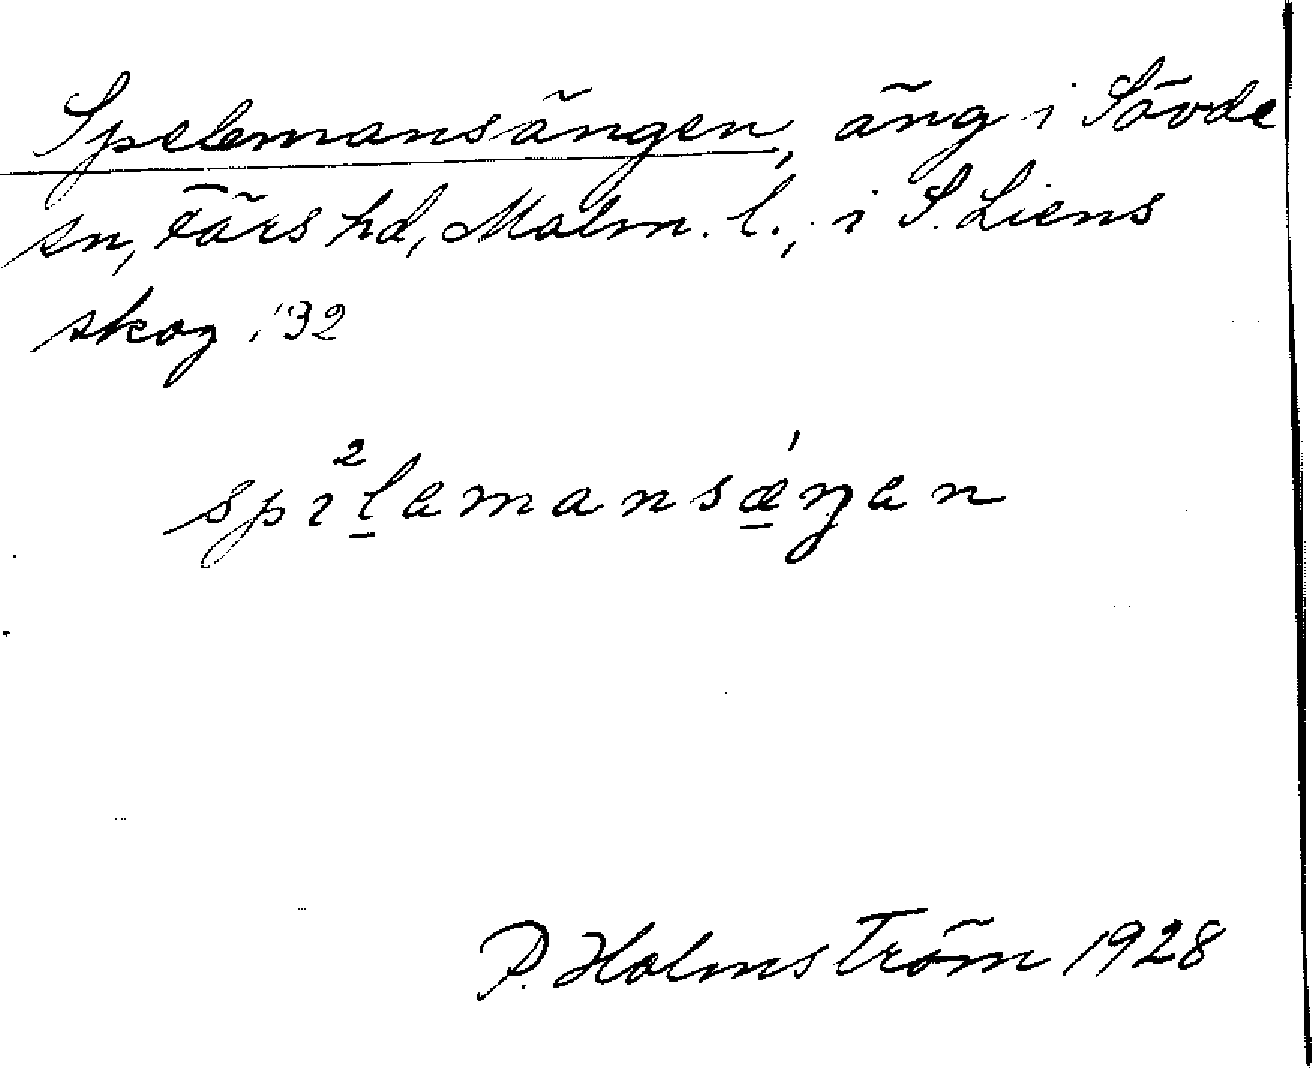 Spelemansängen, äng i Sövde
sn, Färs hd, Malm. l., i S. Liens
skog. '32
spi²lemansǽŋen
P. Holmström 1928